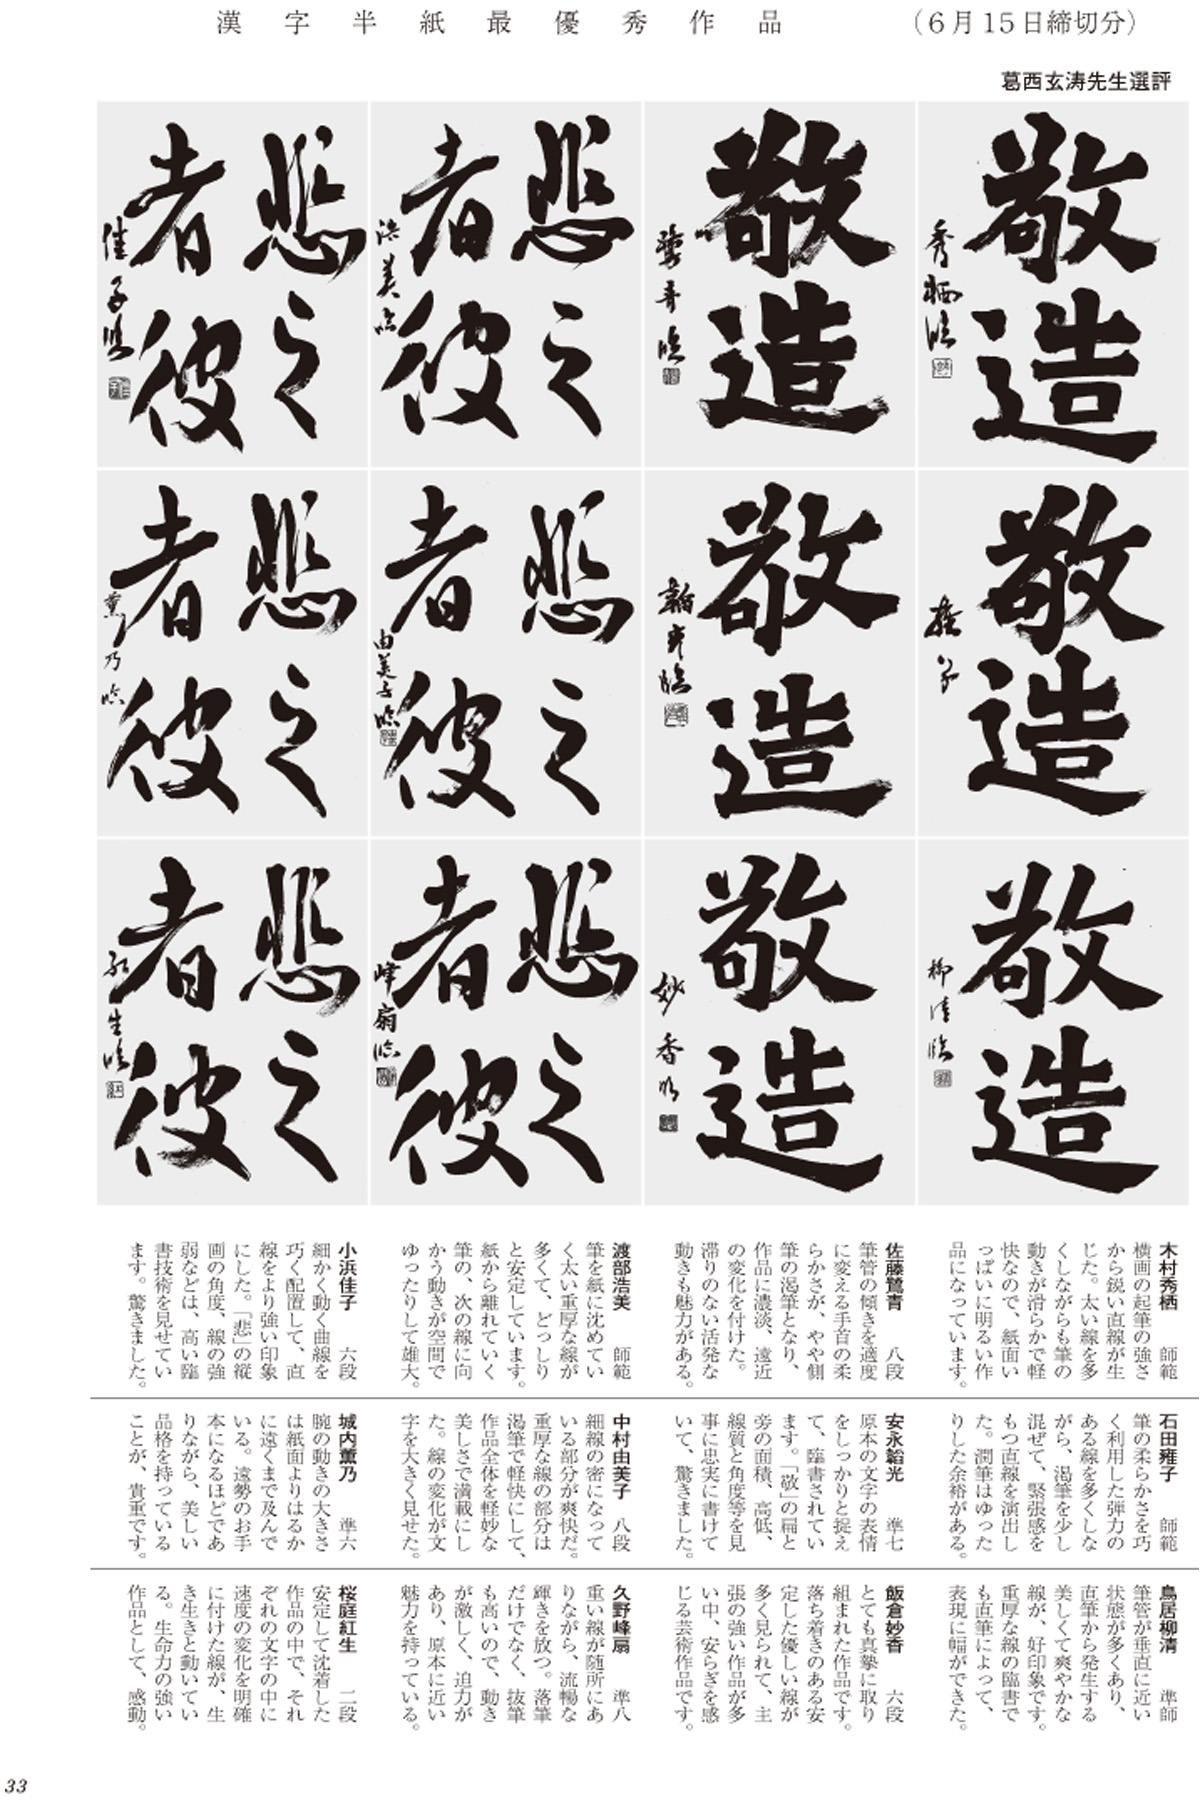 漢字半紙最優秀作品　（６月１５日締切分）
葛西玄涛先生選評
敬造
秀栖臨
敬造
雍子
敬造
柳清臨
敬造
鷺青臨
敬造
韜光臨
敬造
妙香臨
悲之
者彼
浩美臨
悲之
者彼
由美子臨
悲之
者彼
峰扇臨
悲之
者彼
佳子臨
悲之
者彼
薫乃臨
悲之
者彼
紅生臨
木村秀栖　師範
横画の起筆の強さ
から鋭い直線が生
じた。太い線を多
くしながらも筆の
動きが滑らかで軽
快なので、紙面い
っぱいに明るい作
品になっています。
佐藤鷺青　八段
筆管の傾きを適度
に変える手首の柔
らかさが、やや側
筆の渇筆となり、
作品に濃淡、遠近
の変化を付けた。
滞りのない活発な
動きも魅力がある。
渡部浩美　師範
筆を紙に沈めてい
く太い重厚な線が
多くて、どっしり
と安定しています。
紙から離れていく
筆の、次の線に向
かう動きが空間で
ゆったりして雄大。
小浜佳子　六段
細かく動く曲線を
巧く配置して、直
線をより強い印象
にした。「悲」の縦
画の角度、線の強
弱などは、高い臨
書技術を見せてい
ます。驚きました。
石田雍子　師範
筆の柔らかさを巧
く利用した弾力の
ある線を多くしな
がら、渇筆を少し
混ぜて、緊張感を
もつ直線を演出し
た。潤筆はゆった
りした余裕がある。
安永韜光　準七
原本の文字の表情
をしっかりと捉え
て、臨書されてい
ます。「敬」の扁と
旁の面積、高低、
線質と角度等を見
事に忠実に書けて
いて、驚きました。
中村由美子　八段
細線の密になって
いる部分が爽快だ。
重厚な線の部分は
渇筆で軽快にして、
作品全体を軽妙な
美しさで満載にし
た。線の変化が文
字を大きく見せた。
城内薫乃　準六
腕の動きの大きさ
は紙面よりはるか
に遠くまで及んで
いる。遠勢のお手
本になるほどであ
りながら、美しい
品格を持っている
ことが、貴重です。
鳥居柳清　準師
筆管が垂直に近い
状態が多くあり、
直筆から発生する
美しくて爽やかな
線が、好印象です。
重厚な線の臨書で
も直筆によって、
表現に幅ができた。
飯倉妙香　六段
とても真摯に取り
組まれた作品です。
落ち着きのある安
定した優しい線が
多く見られて、主
張の強い作品が多
い中、安らぎを感
じる芸術作品です。
久野峰扇　準八
重い線が随所にあ
りながら、流暢な
輝きを放つ。落筆
だけでなく、抜筆
も高いので、動き
が激しく、迫力が
あり、原本に近い
魅力を持っている。
桜庭紅生　二段
安定して沈着した
作品の中で、それ
ぞれの文字の中に
速度の変化を明確
に付けた線が、生
き生きと動いてい
る。生命力の強い
作品として、感動。
33